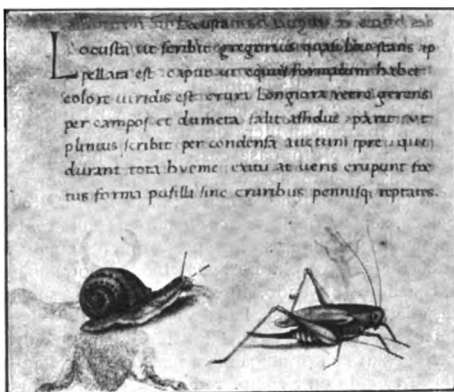 Locusta ut scribit gregorius quasi loco stans ap
pellata est : caput ut equus formatum habet
colore uiridis est crura longiora retro gerens
per campos et dumeta salit assidue : parit sut
plinius scribit per condensa auctuni tpre : que
durant tota hyeme : exitu at ueris erupunt foe
tus forma pusilli sine cruribus pennisq; reptates.